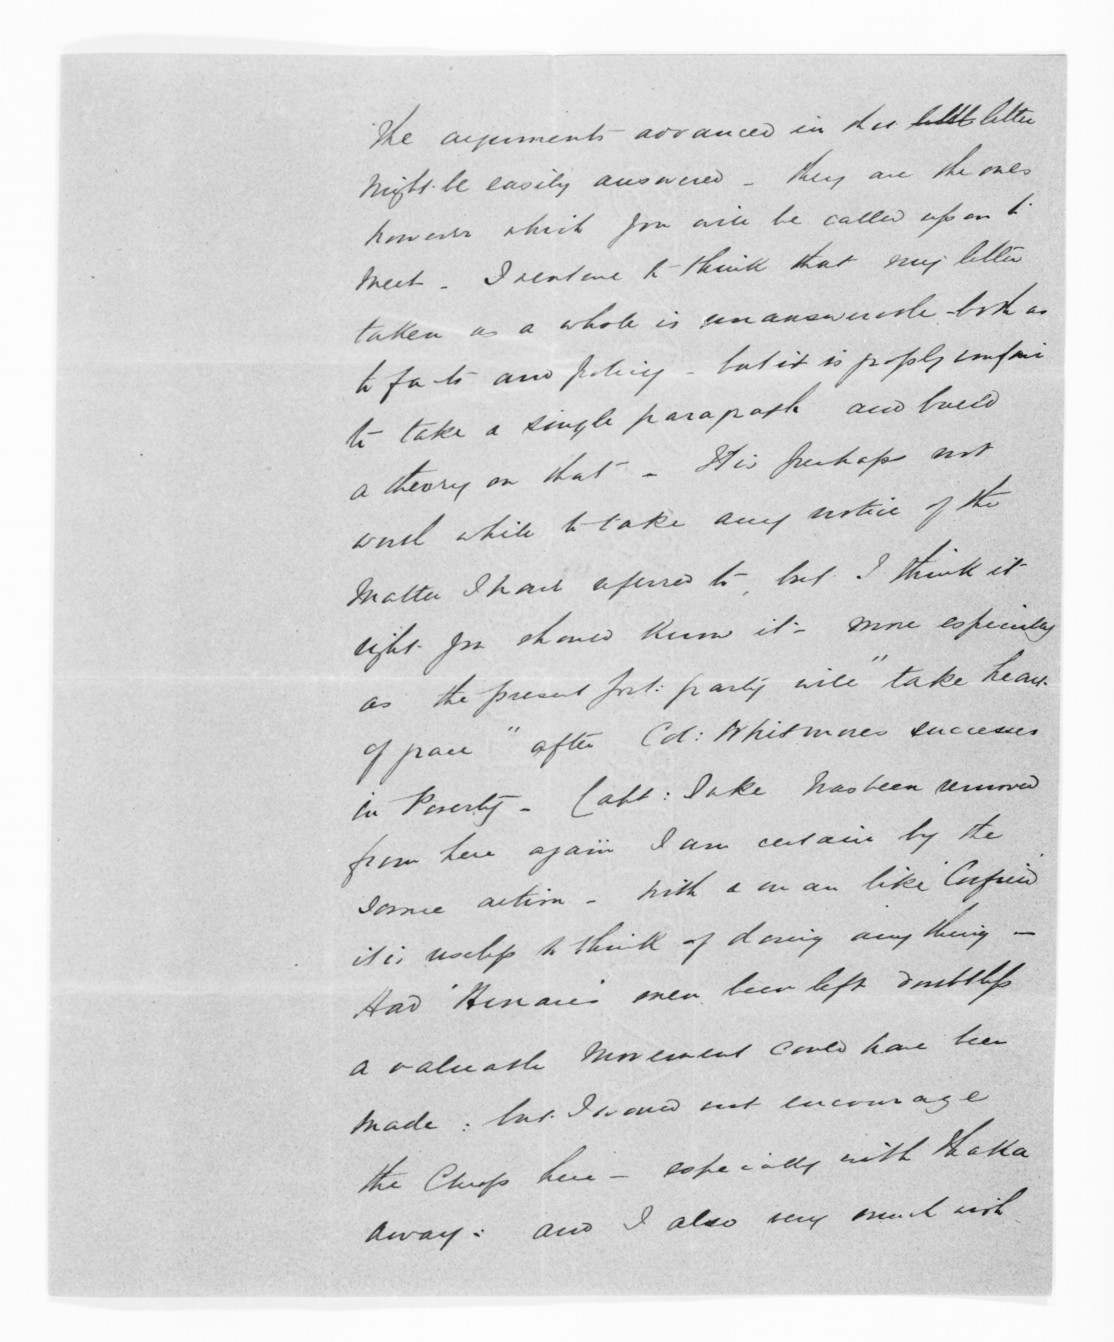 The arguments advanced in this letter
might be easily answered - they are the ones
however which you will be called upon to
meet - I venture to think that my letter
taken as a whole is unanswerable - both as
to facts and policy - but it is unfair
to take a single paragraph and build
a theory on that - It is perhaps not
worth while to take any notice of the
matter I have referred to, but I think it
right you should know it - more especially
as the present Govt: party will "take heart
of grace" after Col: Whitmores successes
in Poverty - Capt: has been removed
from here again I am certain by the
same action - With a man like
it is useless to think of doing any thing -
Had men been left doubtless
a valuable movement could have been
made : but I would not encourage
the here - especially with
away : and I also very much wish